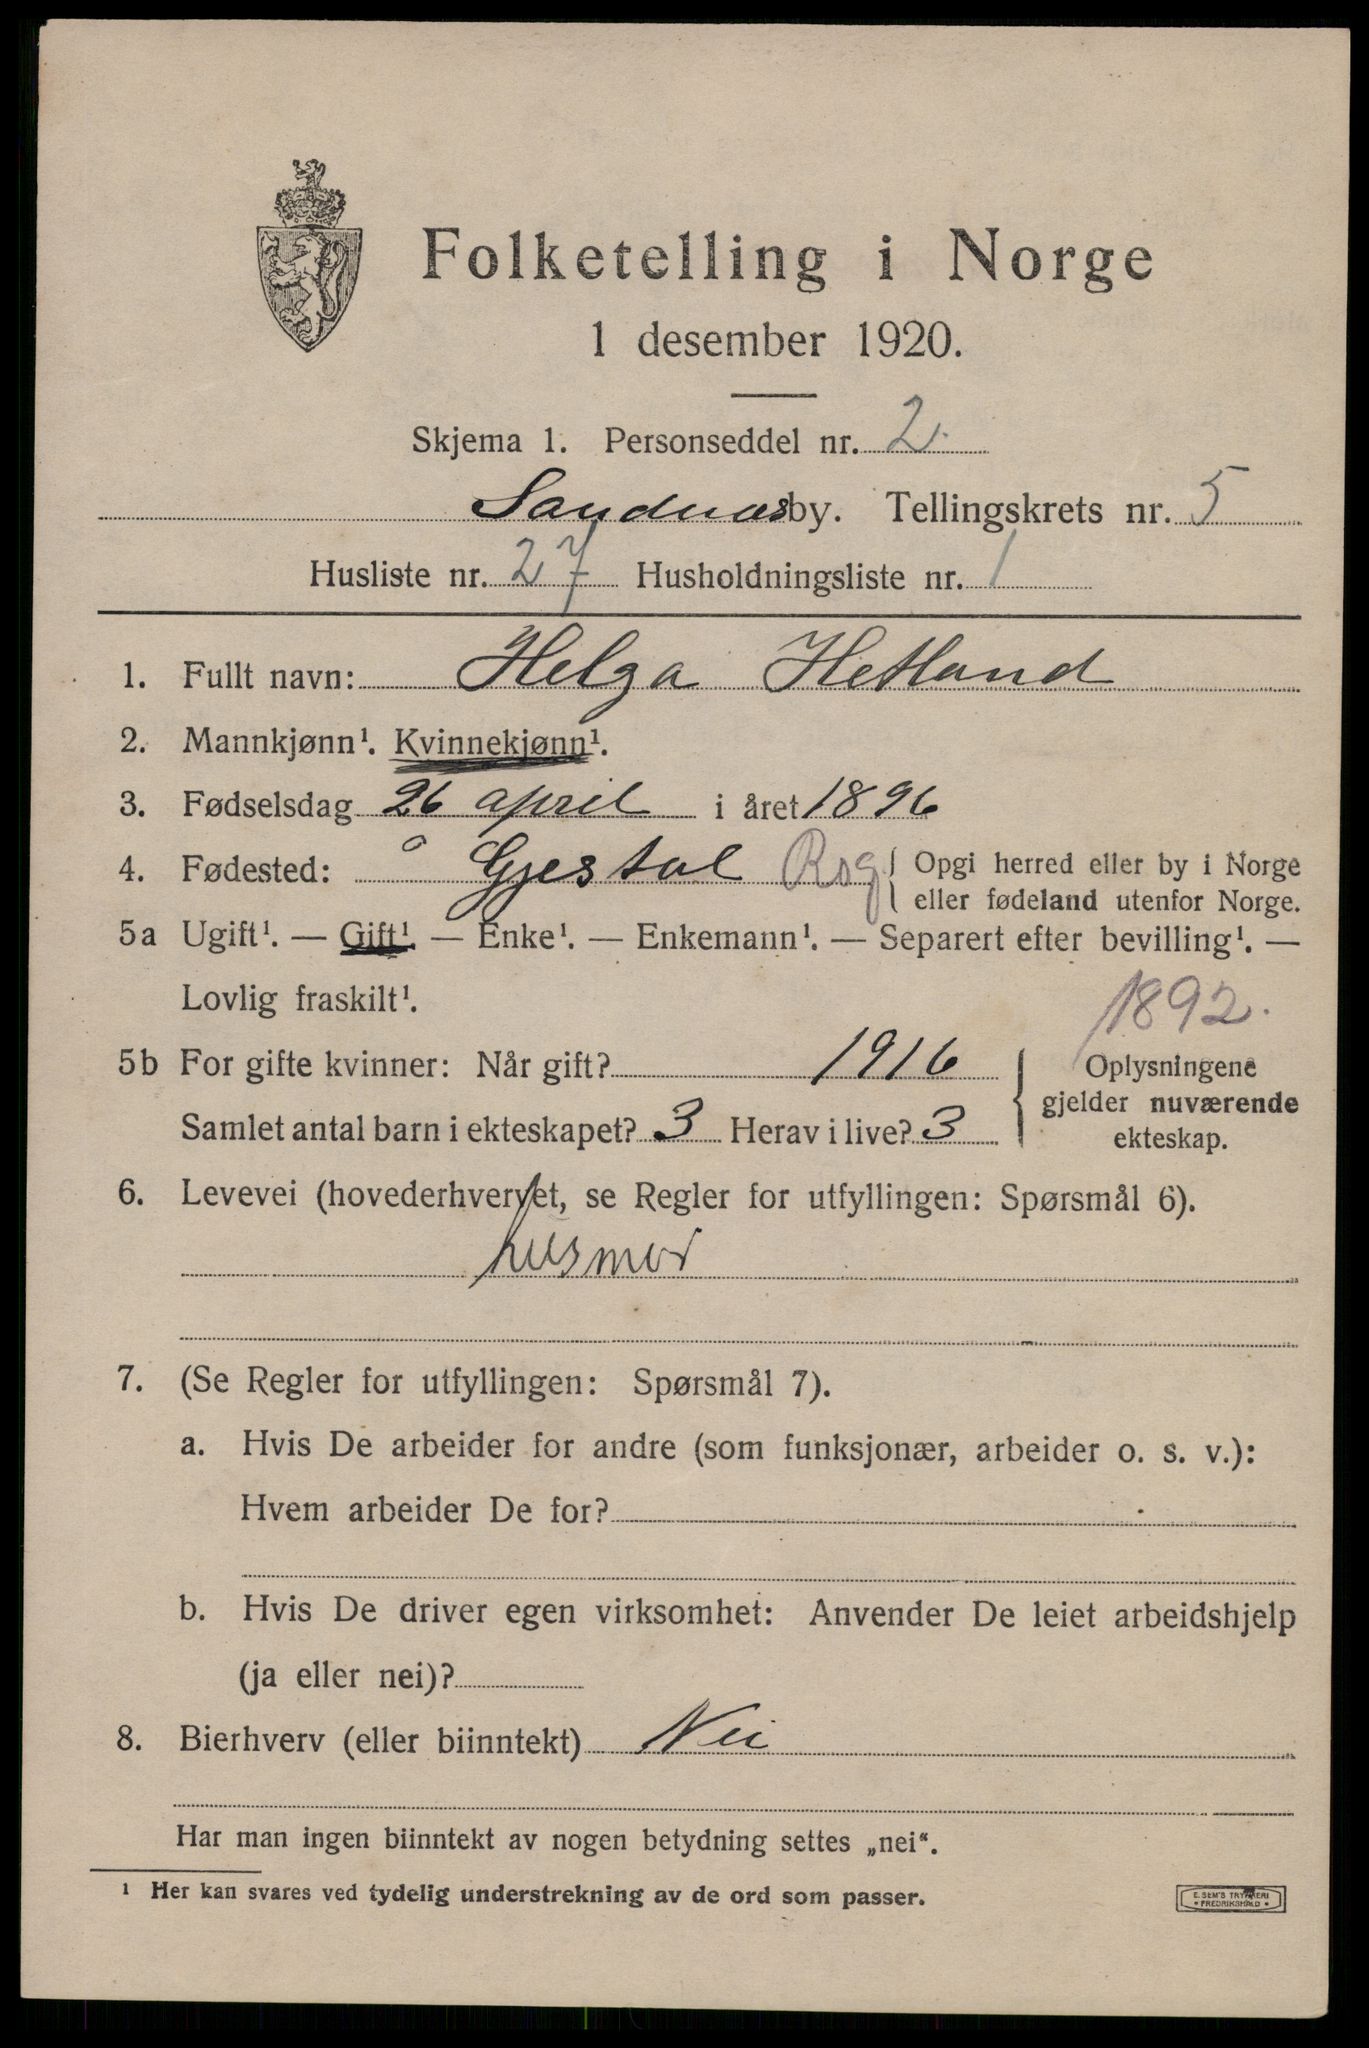 Folketelling i Norge
1 desember 1920.
Skjema 1. Personseddel nr. 2.
Sandnes by. Tellingskrets nr. 5
Husliste nr. 27 Husholdningsliste nr. 1
1. Fullt navn: Helga Hetland
2. Mannkjønn¹. Kvinnekjønn¹.
3. Fødselsdag 26 april i året 1896
4. Fødested: Gjestal Rog { Opgi herred eller by i Norge
eller fødeland utenfor Norge.
5a Ugift¹. — Gift¹. — Enke¹. — Enkemann¹. — Separert efter bevilling¹. —
Lovlig fraskilt¹.
1892.
5b For gifte kvinner: Når gift? 1916 { Oplysningene
gjelder nuværende
Samlet antal barn i ekteskapet? 3 Herav i live? 3
ekteskap.
6. Levevei (hovederhvervet, se Regler for utfyllingen: Spørsmål 6).
husmor
7. (Se Regler for utfyllingen: Spørsmål 7).
a. Hvis De arbeider for andre (som funksjonær, arbeider o. s. v.):
Hvem arbeider De for?
b. Hvis De driver egen virksomhet: Anvender De leiet arbeidshjelp
(ja eller nei)?
8. Bierhverv (eller biinntekt) Nei
Har man ingen biinntekt av nogen betydning settes „nei“.
¹ Her kan svares ved tydelig understrekning av de ord som passer.
E. SEM'S TRYKKERI
• FREDRIKSHALD •